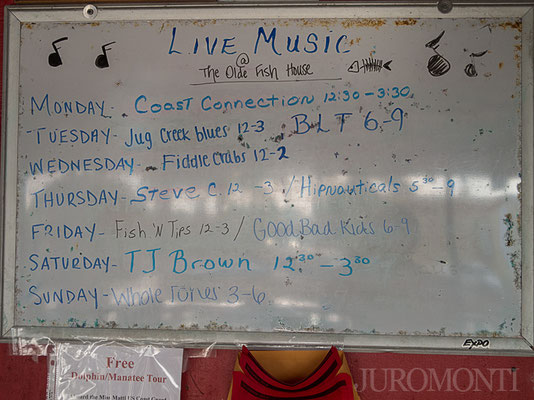 LIVE MUSIC
@
The Olde Fish House
MONDAY- COAST CONNECTION 12:30-3:30
TUESDAY- Jug Creek blues 12-3 BLT 6-9
WEDNESDAY- FIDDLE CRABS 12-2
THURSDAY- STEVE C. 12-3 / Hipnauticals 5³⁰-9
FRIDAY- Fish 'N Tips 12-3 / Good Bad Kids 6-9
SATURDAY- TJ Brown 12³⁰-3³⁰
SUNDAY- Whole 3-6
EXPO
Free
Dolphin/Manatee Tour
JUROMONTI